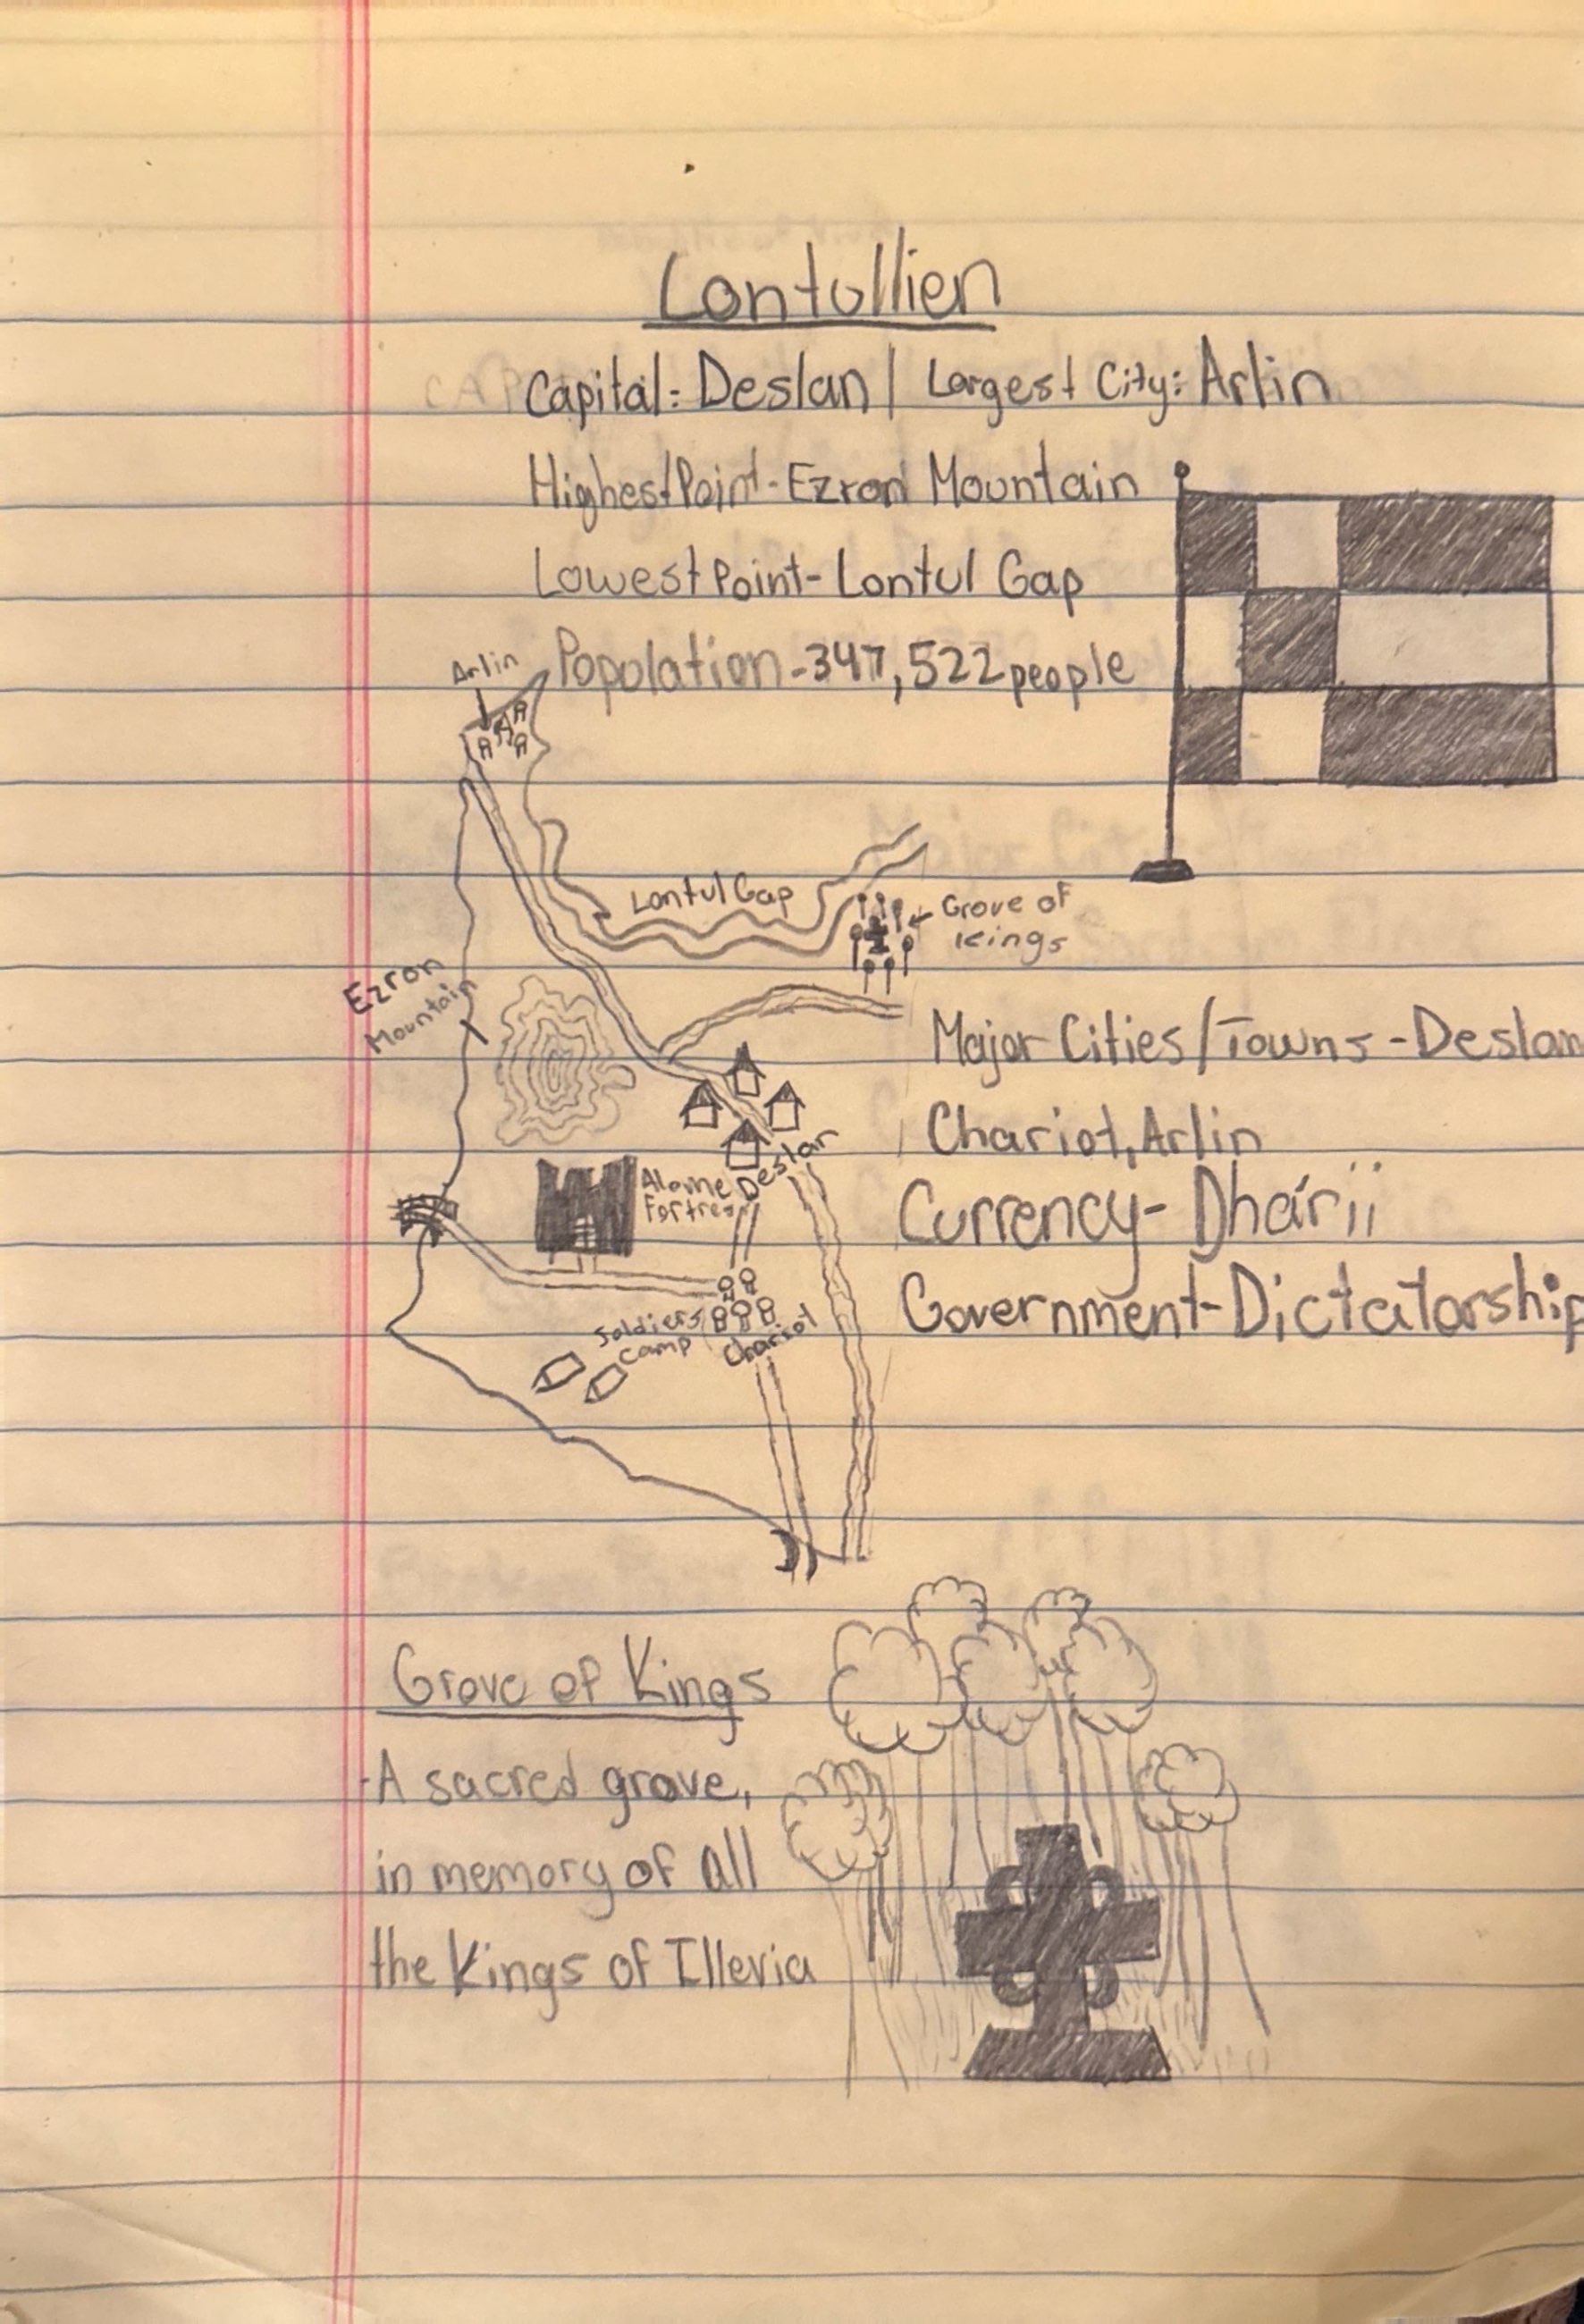 Lontullien
Capital: Deslan | Largest City: Arlin
Highest Point - Ezron Mountain
Lowest Point - Lontul Gap
Population - 347,522 people
Arlin
Lontul Gap
Grove of
Kings
Ezron
Mountain
Major Cities/Towns - Deslan
Chariot, Arlin
Deslan
Fortress
Currency - Dhárii
Government - Dictatorship
Soldiers
Camp
Chariot
Grove of Kings
-A sacred grove,
in memory of all
the Kings of Illevia